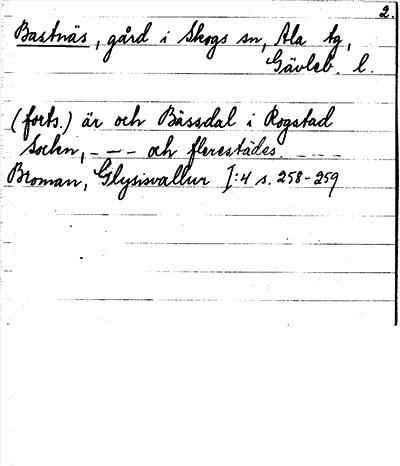 2.
Bastnäs, gård i Skogs sn, Ala tg,
Gävleb. l.
(forts.) är och Båssdal i Rogstad
Sochn, - — - och flerestädes. - - -
Broman, Glysisvallur I:4 s. 258-259